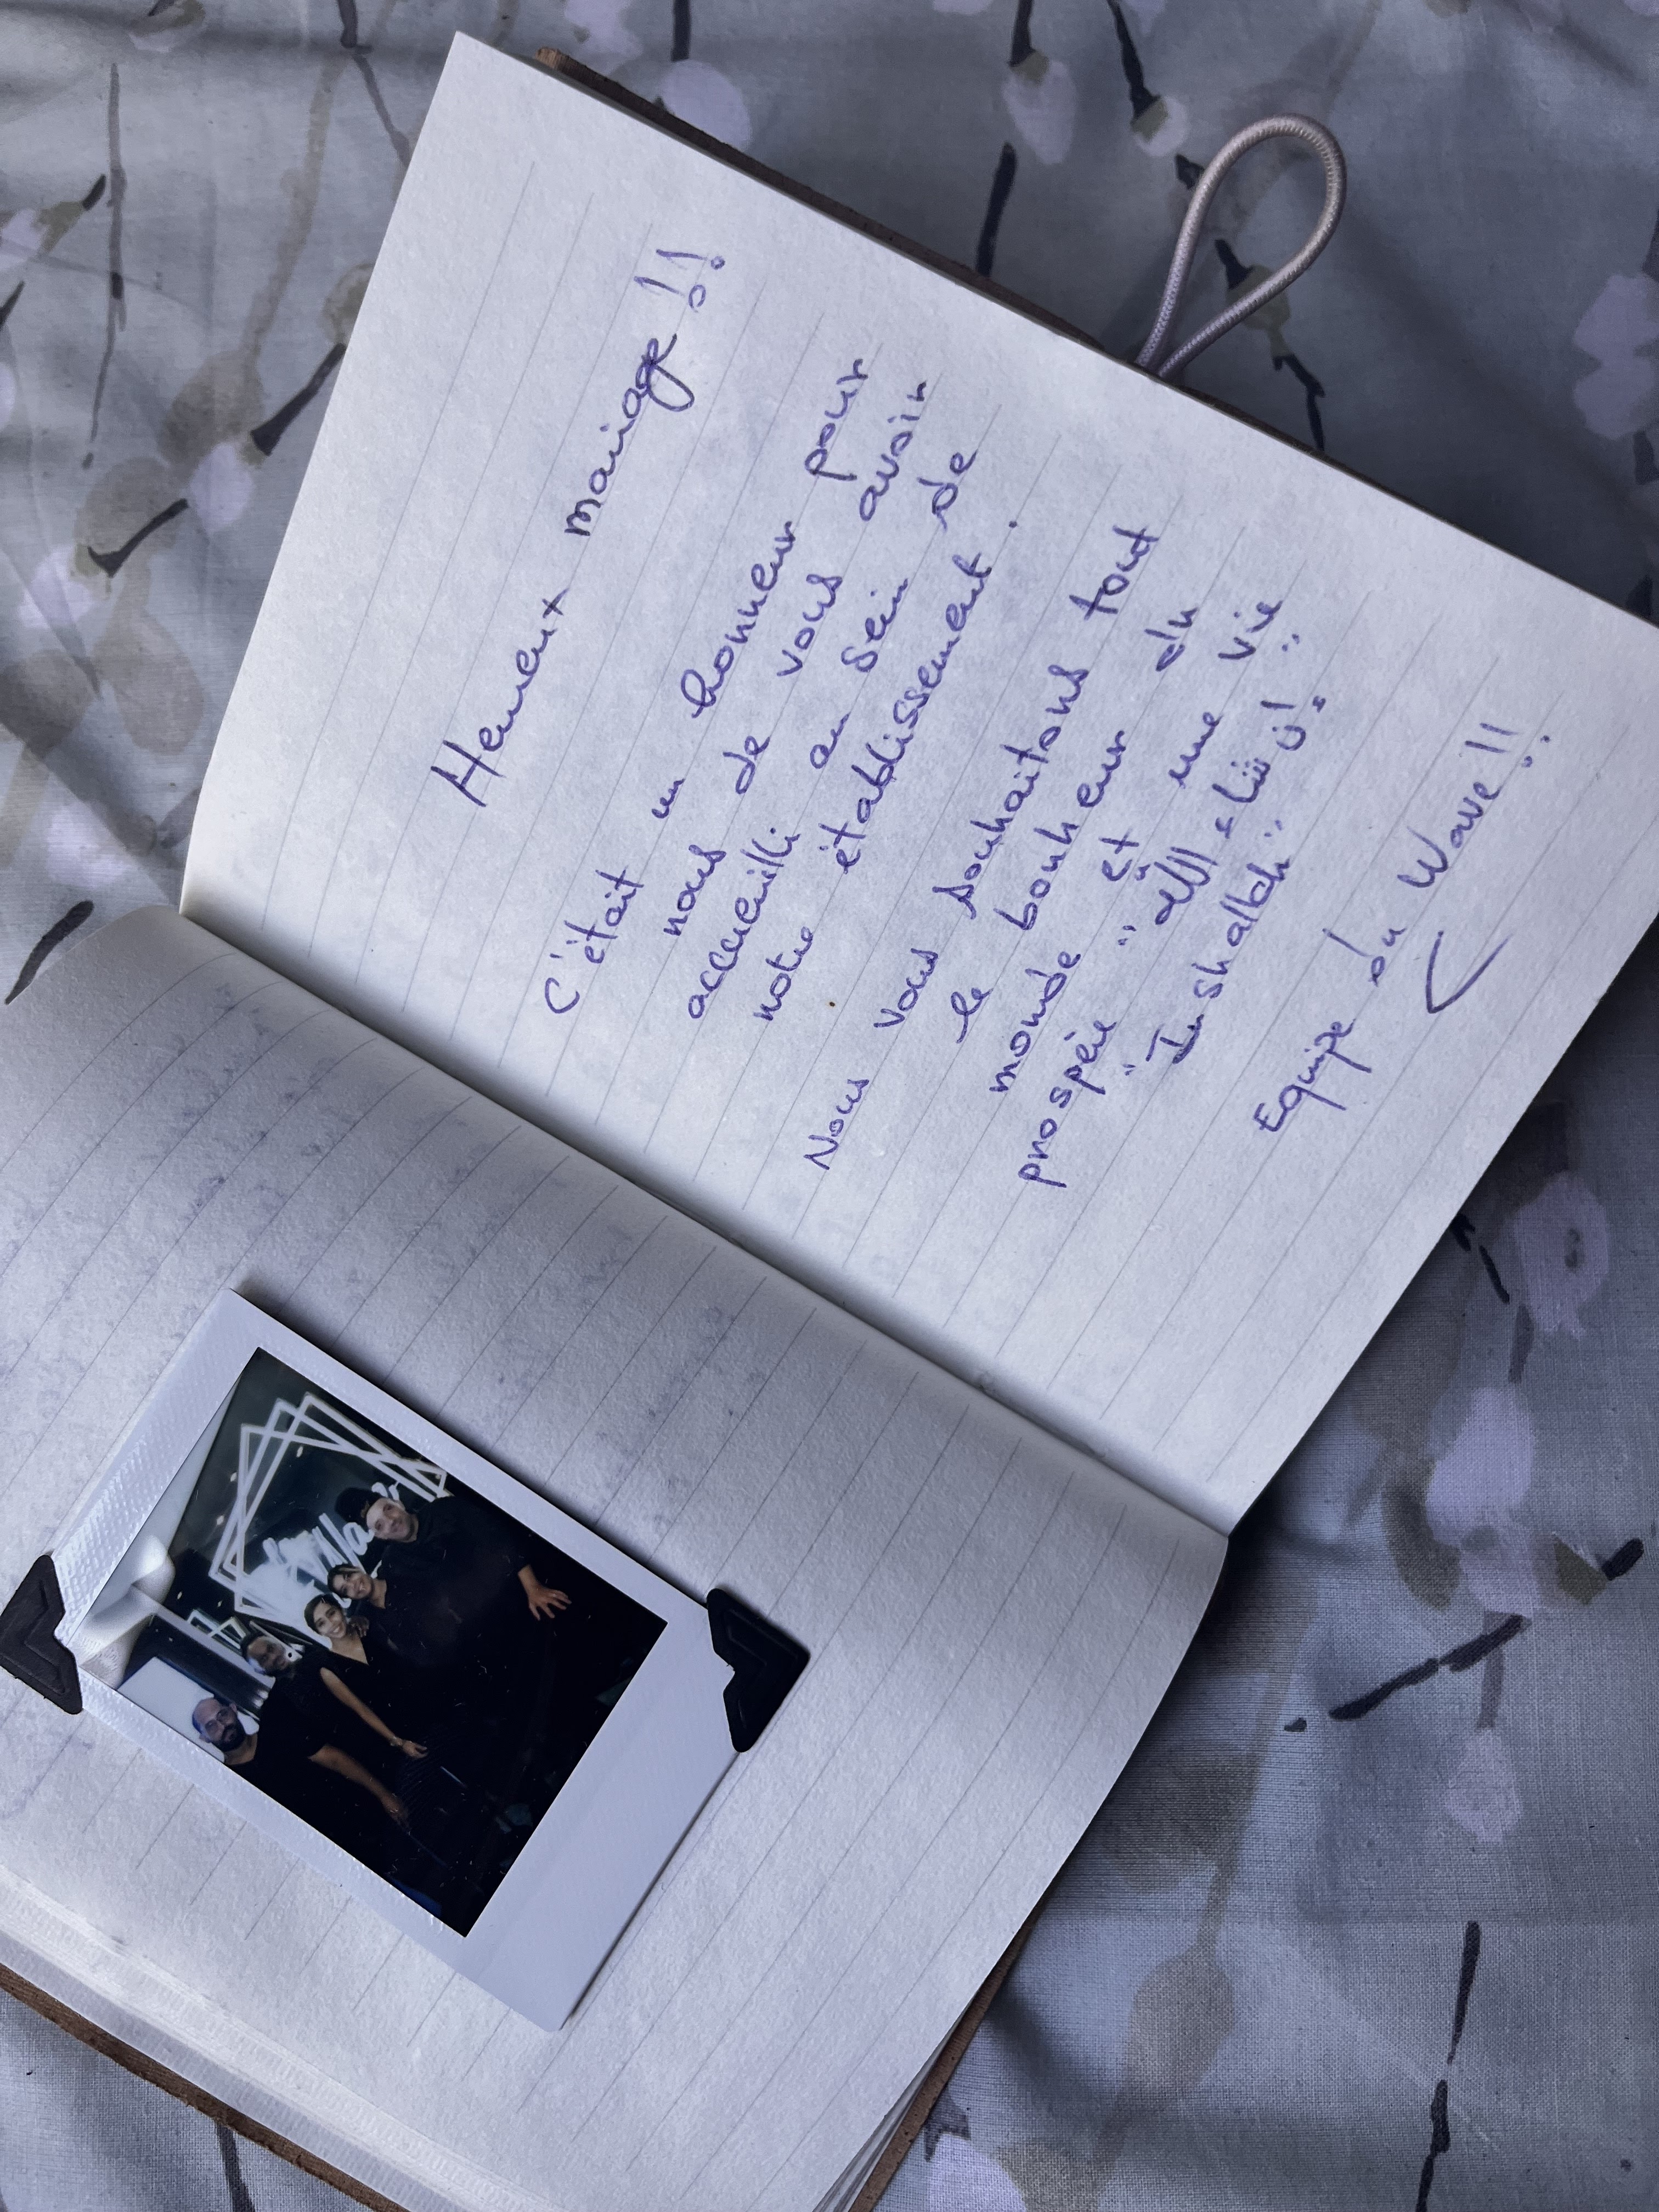 Heureux mariage !!
C'était un honneur pour
nous de vous avoir
accueilli au sein de
notre établissement.
Nous vous souhaitons tout
le bonheur du
monde et une vie
prospère "إن شاء الله"
"Inshallah"
Equipe du Wave !!